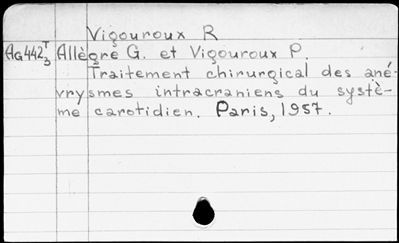 Vigouroux R
AG442 T/3 Allègre G. et Vigouroux P.
Traitement chirurgical des ané-
vrysmes intracraniens du systè-
me carotidien. Paris, 1957.